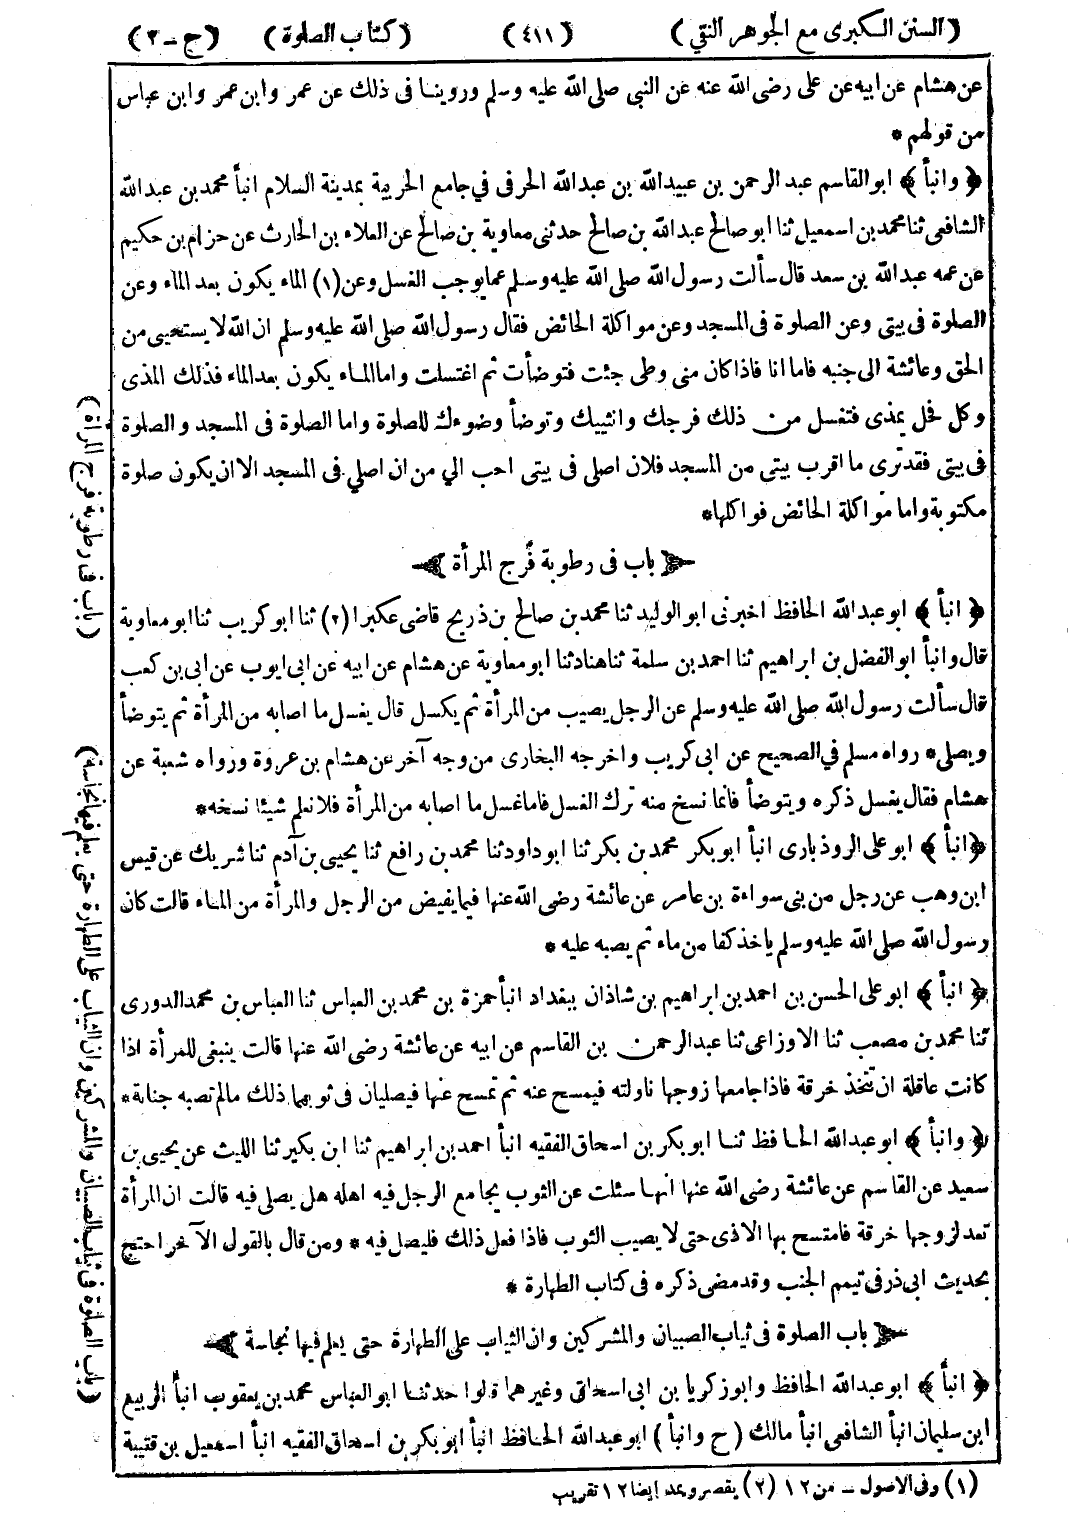 (السنن الكبرى مع الجوهر النقي) (٤١١) (كتاب الصلوة) (ج - ٢)
عن هشام عن ابيه عن على رضى الله عنه عن النبى صلى الله عليه وسلم وروينا فى ذلك عن عمر وابن عمر وابن عباس
من قولهم *
﴿ وانبأ ﴾ ابو القاسم عبد الرحمن بن عبيدالله بن عبدالله الحرفى في جامع الحربية بمدينة السلام انبأ محمد بن عبدالله
الشافعى ثنا محمد بن اسمعيل ثنا ابو صالح عبدالله بن صالح حدثنى معاوية بن صالح عن العلاء بن الحارث عن حزام بن حكيم
عن عمه عبدالله بن سعد قال سألت رسول الله صلى الله عليه وسلم عما يوجب الغسل وعن (١) الماء يكون بعد الماء وعن
الصلوة فى بيتى وعن الصلوة فى المسجد وعن مواكلة الحائض فقال رسول الله صلى الله عليه وسلم ان الله لا يستحيى من
الحق وعائشة الى جنبه فاما انا فاذا كان منى وطى جئت فتوضأت ثم اغتسلت واما الماء يكون بعد الماء فذلك المذى
وكل فحل يمذى فتغسل من ذلك فرجك وانثييك وتوضأ وضوءك للصلوة واما الصلوة فى المسجد والصلوة
فى بيتى فقد ترى ما اقرب بيتى من المسجد فلان اصلى فى بيتى احب الي من ان اصلي فى المسجد الا ان يكون صلوة
مكتوبة واما مواكلة الحائض فواكلها*
باب فى رطوبة فرج المرأة
﴿ انبأ ﴾ ابو عبدالله الحافظ اخبرنى ابو الوليد ثنا محمد بن صالح بن ذريح قاضى عكبرا (٢) ثنا ابو كريب ثنا ابو معاوية
قال وانبأ ابو الفضل بن ابراهيم ثنا احمد بن سلمة ثنا هناد ثنا ابو معاوية عن هشام عن ابيه عن ابى ايوب عن ابى بن كعب
قال سألت رسول الله صلى الله عليه وسلم عن الرجل يصيب من المرأة ثم يكسل قال يغسل ما اصابه من المرأة ثم يتوضأ
ويصلى* رواه مسلم في الصحيح عن ابى كريب واخرجه البخارى من وجه آخر عن هشام بن عروة ورواه شعبة عن
هشام فقال يغسل ذكره ويتوضأ فانما نسخ منه ترك الغسل فاما غسل ما اصابه من المرأة فلا نعلم شيئا نسخه*
﴿ انبأ ﴾ ابو على الروذبارى انبأ ابو بكر محمد بن بكر ثنا ابو داود ثنا محمد بن رافع ثنا يحيى بن آدم ثنا شريك عن قيس
ابن وهب عن رجل من بنى سواءة بن عامر عن عائشة رضى الله عنها فيما يفيض من الرجل والمرأة من الماء قالت كان
رسول الله صلى الله عليه وسلم ياخذ كفا من ماء ثم يصبه عليه *
﴿ انبأ ﴾ ابو على الحسن بن احمد بن ابراهيم بن شاذان ببغداد انبأ حمزة بن محمد بن العباس ثنا العباس بن محمد الدورى
ثنا محمد بن مصعب ثنا الاوزاعى ثنا عبد الرحمن بن القاسم عن ابيه عن عائشة رضى الله عنها قالت ينبغى للمرأة اذا
كانت عاقلة ان تتخذ خرقة فاذا جامعها زوجها ناولته فيمسح عنه ثم تمسح عنها فيصليان فى ثوبهما ذلك مالم تصبه جنابة *
﴿ وانبأ ﴾ ابو عبدالله الحافظ ثنا ابو بكر بن اسحاق الفقيه انبأ احمد بن ابراهيم ثنا ابن بكير ثنا الليث عن يحيى بن
سعيد عن القاسم عن عائشة رضى الله عنها انها سئلت عن الثوب يجامع الرجل فيه اهله هل يصلى فيه قالت ان المرأة
تعد لزوجها خرقة فامتسح بها الاذى حتى لا يصيب الثوب فاذا فعل ذلك فليصل فيه * ومن قال بالقول الآخر احتج
بحديث ابى ذر فى تيمم الجنب وقد مضى ذكره فى كتاب الطهارة *
باب الصلوة فى ثياب الصبيان والمشركين وان الثياب على الطهارة حتى يعلم فيها نجاسة
﴿ انبأ ﴾ ابو عبدالله الحافظ وابو زكريا بن ابى اسحاق وغيرهما قالوا حدثنا ابو العباس محمد بن يعقوب انبأ الربيع
ابن سليمان انبأ الشافعى انبأ مالك (ح وانبأ) ابو عبدالله الحافظ انبأ ابو بكر بن اسحاق الفقيه انبأ اسمعيل بن قتيبة
(١) وفى الاصول - من ١٢ (٢) يقصر ويمد ايضا ١٢ تقريب
(باب فى رطوبة فرج المرأة)
(باب الصلوة فى ثياب الصبيان والمشركين وان الثياب على الطهارة حتى يعلم فيها نجاسة)